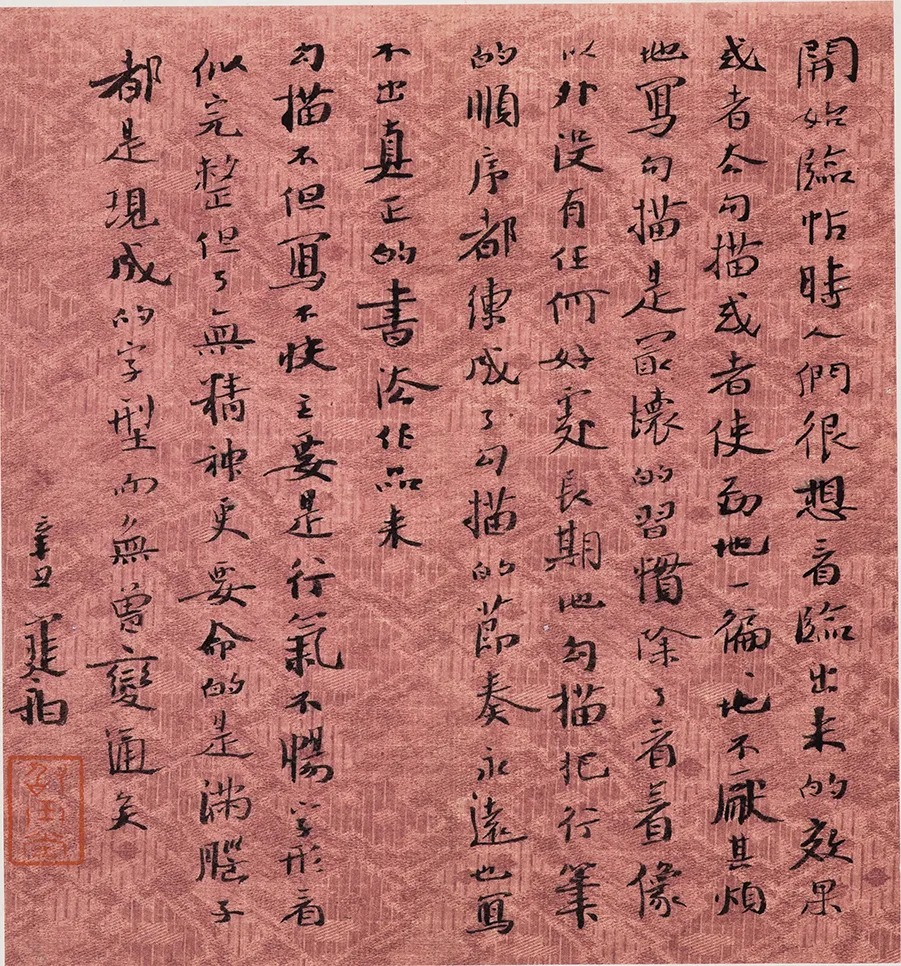 開始臨帖時人們很想看臨出来的效果
或者去勾描或者使勁地一徧〻地不厭其煩
地寫勾描是最壞的習慣除了看着像
以外没有任何好處長期地勾描把行筆
的順序都練成了勾描的節奏永遠也寫
不出真正的書法作品来
勾描不但寫不快主要是行氣不暢字形看
似完整但了無精神更要命的是满腦子
都是現成的字型而無曾變通矣
辛丑